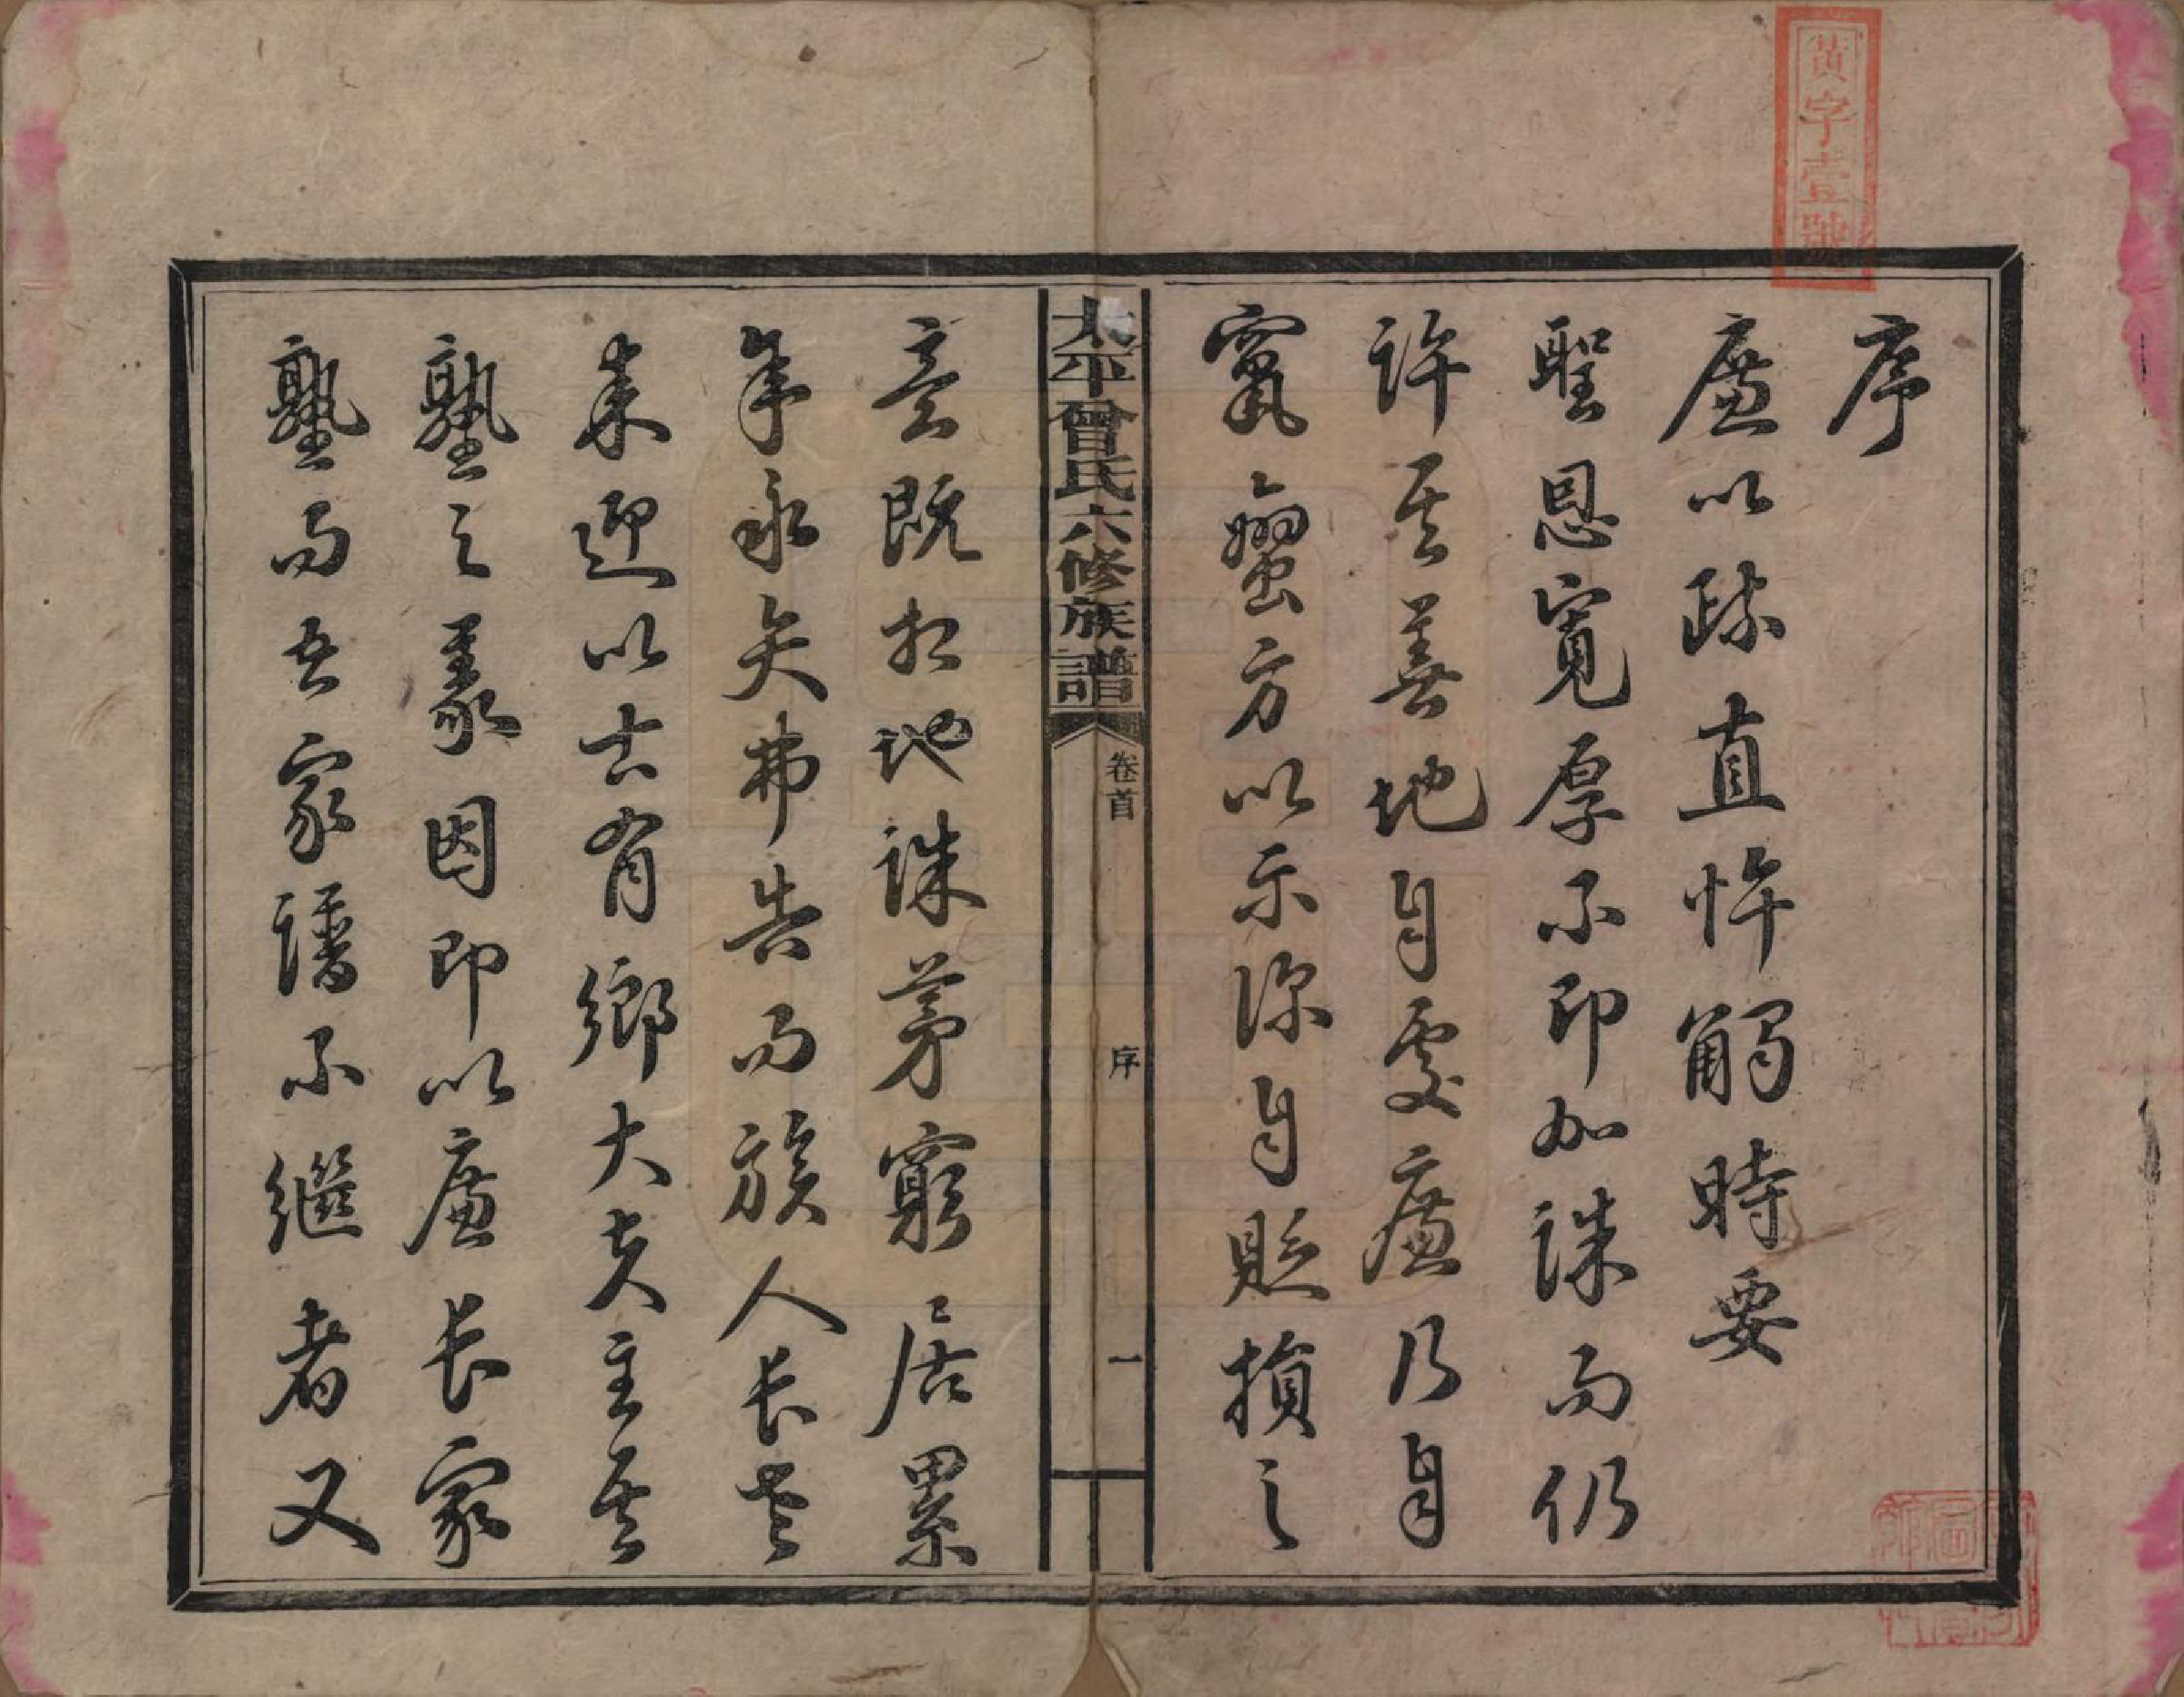 黃字壹號
序
廉以疎直忤觸時要
聖恩寬厚不即加誅而仍
許其善地自處廉乃自
竄蠻方以示深自貶損之
太平曾氏六修族譜
卷首
序
一
意既相地誅茅窮居累
年永矢弗告而族人長老
來迎以古有鄉大夫主其
塾之義因即以廉長家
塾而吾家譜不繼者又